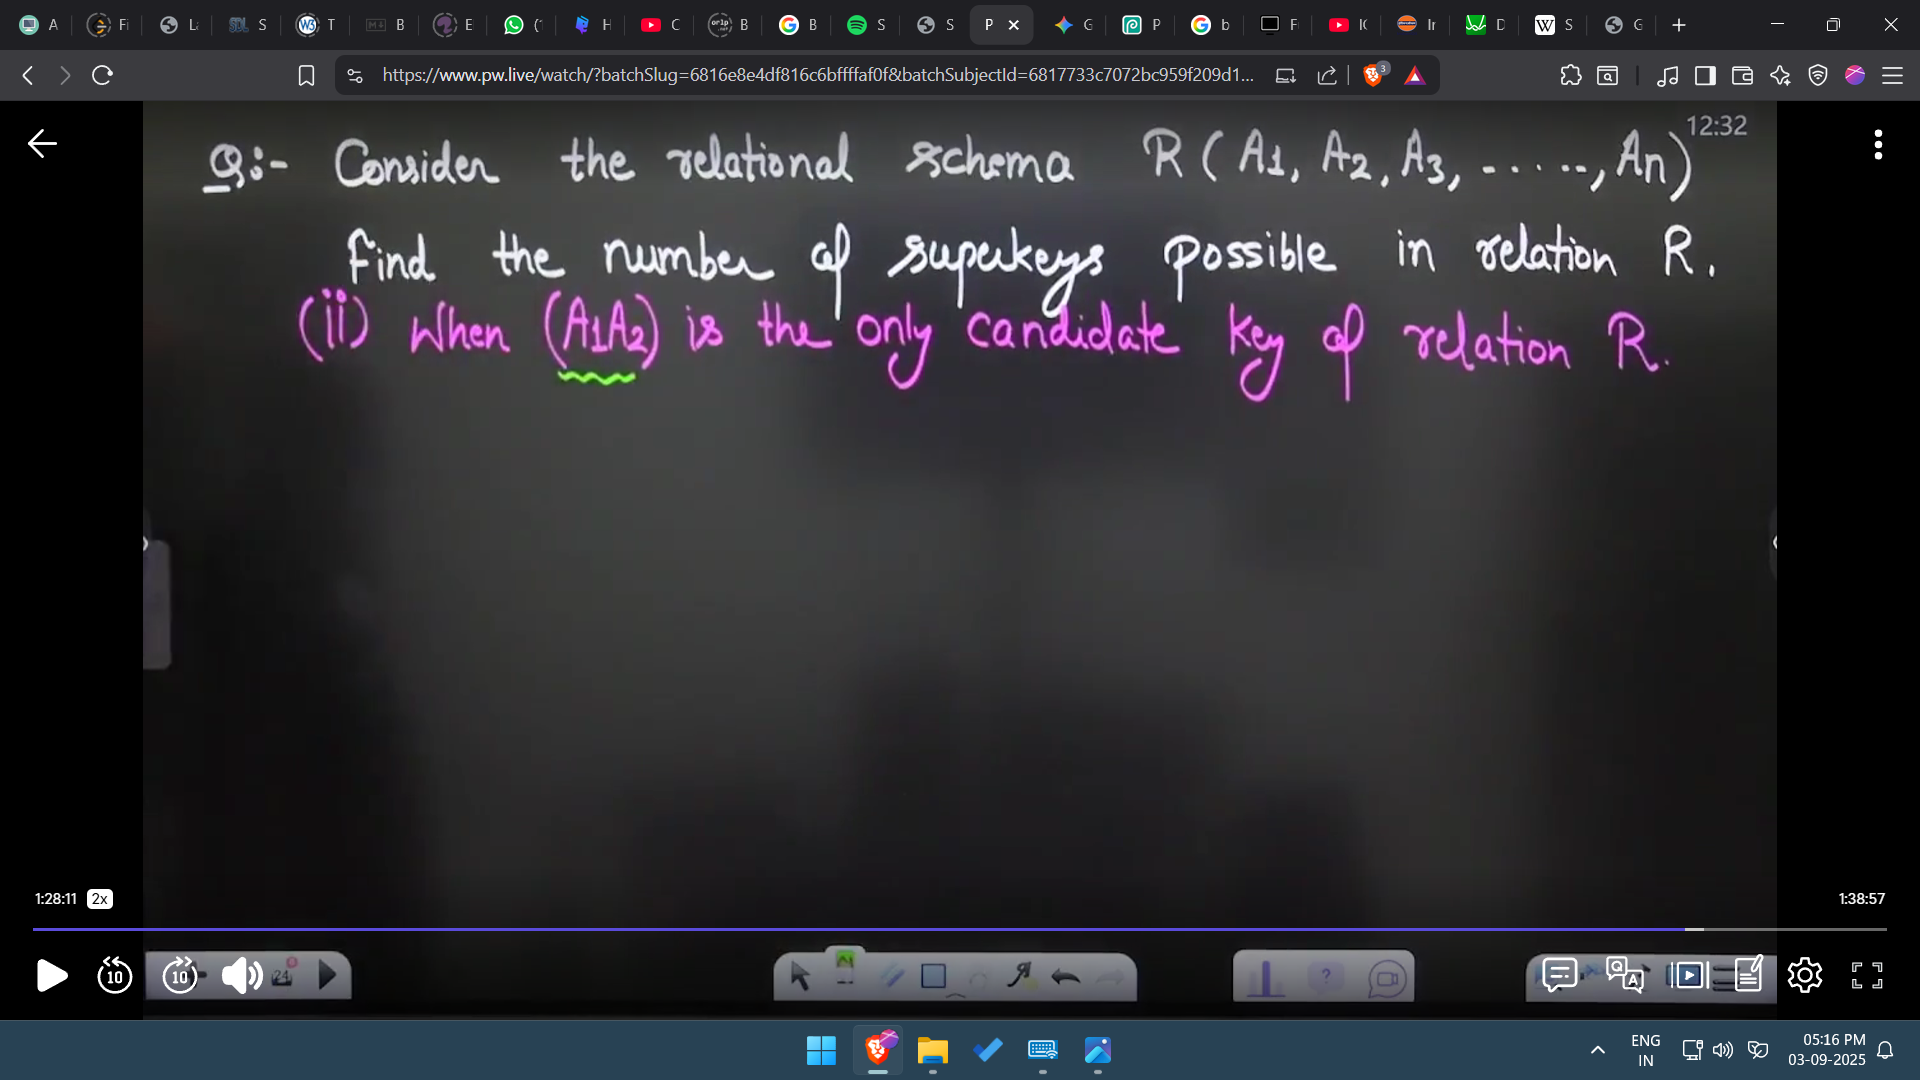 A
Fi
SDL S
W3 T
B
E
H
C
orip .net B
B
S
S
P
G
P
b
F
D
W S
G
https://www.pw.live/watch/?batchSlug=6816e8e4df816c6bffffaf0f&batchSubjectId=6817733c7072bc959f209d1...
3
12:32
Q:- Consider the relational schema R(A1, A2, A3, ......, An)
Find the number of superkeys possible in relation R.
(ii) When (A1A2) is the only candidate key of relation R.
1:28:11 2x
1:38:57
10
10
24
?
Q A
ENG
IN
05:16 PM
03-09-2025